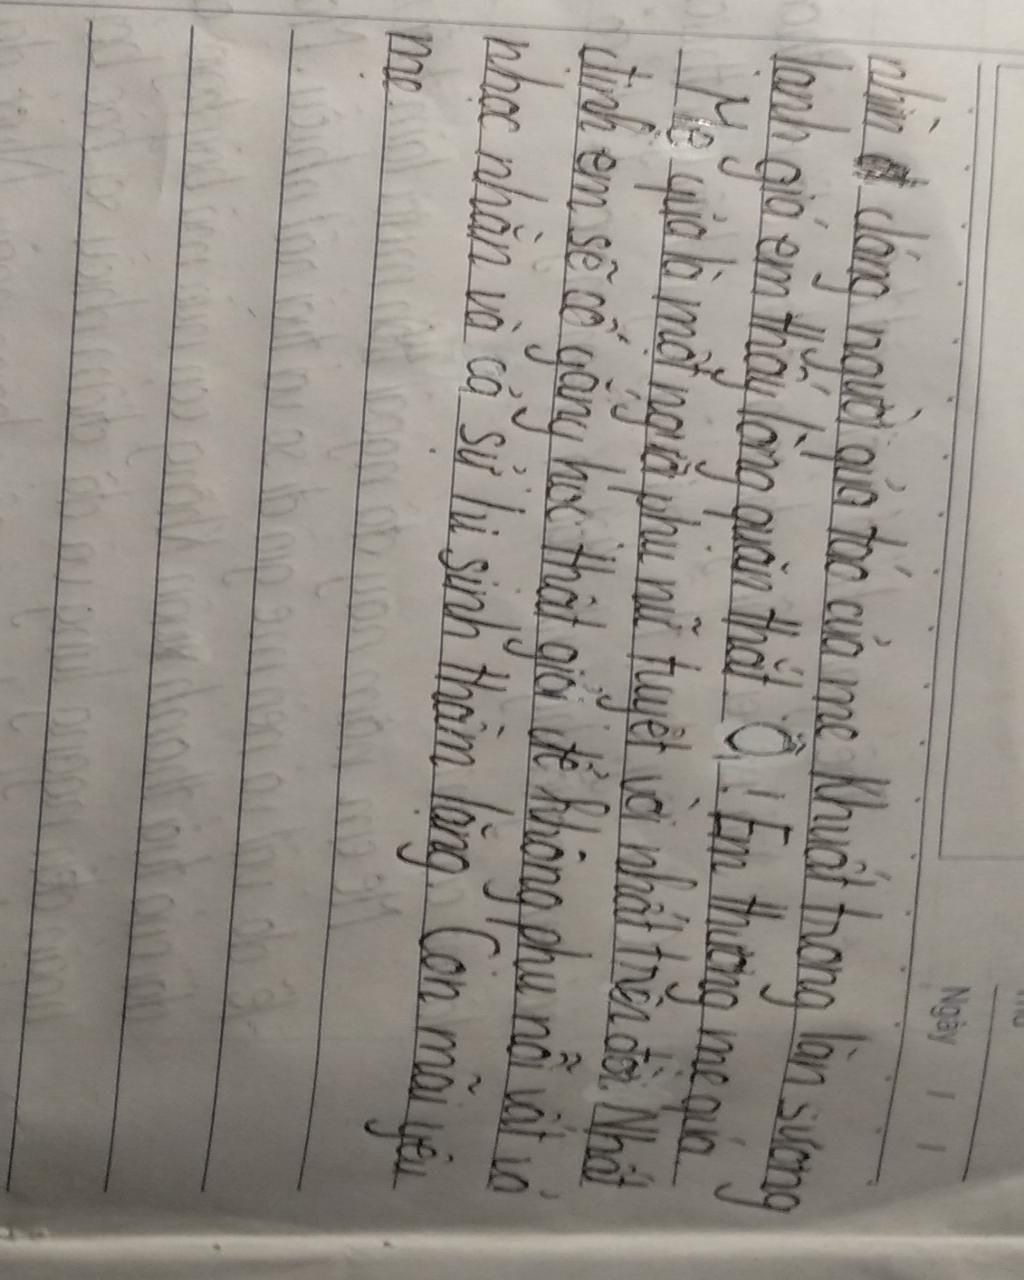 Ngày / /
nhìn dáng người giáo tác của mẹ khuất trong làn sương
lạnh giá em thấy lòng quặn thắt. Ôi! Em thương mẹ quá
Mẹ quả là một người phụ nữ tuyệt vời nhất trên đời. Nhất
định em sẽ cố gắng học thật giỏi để không phụ nỗi vất vả
nhọc nhằn và cả sự hi sinh thầm lặng. Con mãi yêu
mẹ.